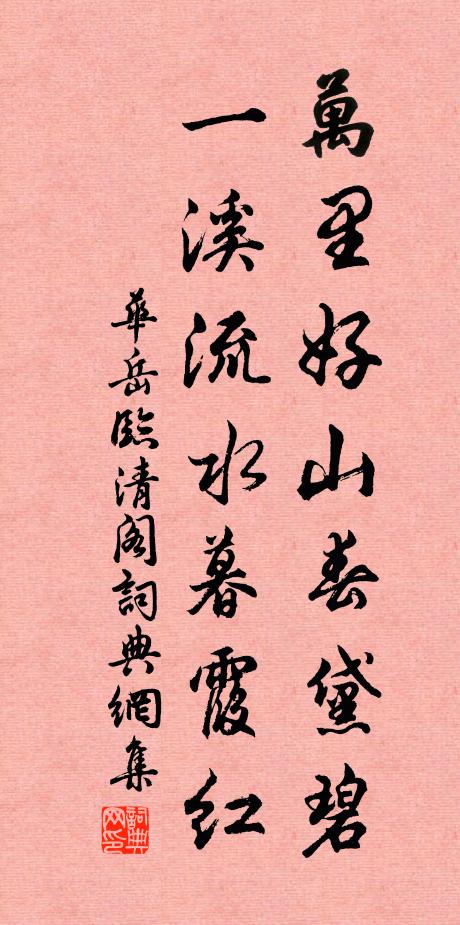 萬里好山春黛碧
一溪流水暮霞紅
華岳臨清閣詞典網集
詞典网印